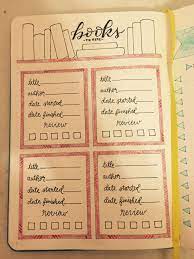 books
to read
title
author
date started
date finished
review
title
author
date started
date finished
review
title
author
date started
date finished
review
title
author
date started
date finished
review